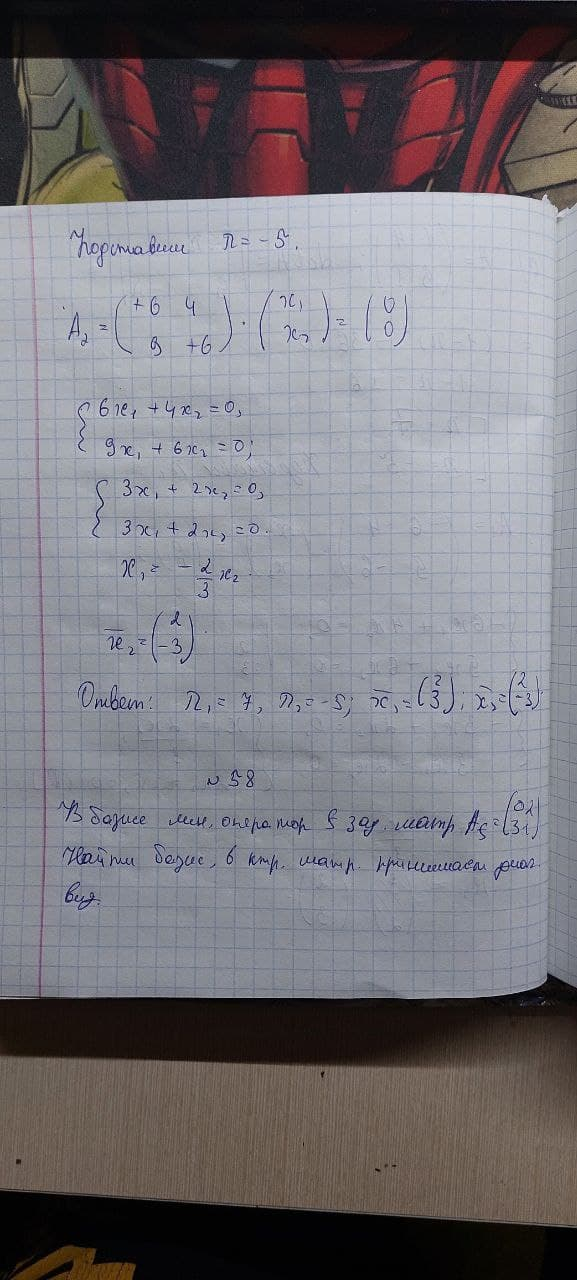 Подставим λ = -5.
A₂ = (+6 4; 9 +6) · (x₁; x₂) = (0; 0)
{ 6x₁ + 4x₂ = 0,
9x₁ + 6x₂ = 0;
{ 3x₁ + 2x₂ = 0,
3x₁ + 2x₂ = 0.
x₁ = -2/3 x₂
x̅₂ = (2; -3).
Ответ: λ₁ = 7, λ₂ = -5; x̅₁ = (2; 3); x̅₂ = (2; -3).
№ 58
В базисе лин. оператор f зад. матр. A_f = (0 2; 3 1)
Найти базис, в ктр. матр. принимает диаг.
вид.